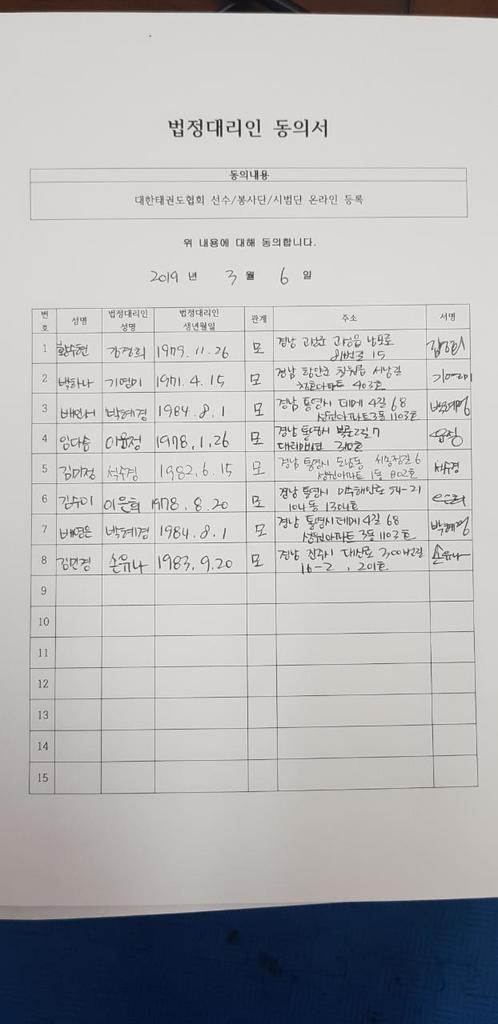 법정대리인 동의서
동의내용
대한태권도협회 선수/봉사단/시범단 온라인 등록
위 내용에 대해 동의합니다.
2019 년 3 월 6 일
번호 성명 법정대리인 성명 법정대리인 생년월일 관계 주소 서명
1 황수현 강정희 1979. 11. 26 모 경남 고성군 고성읍 남포로
15
2 박하나 기영미 1971. 4. 15 모 경남 함안군 칠원읍
아파트 403호
3 배언서 박혜경 1984. 8. 1 모 경남 통영시 데메 4길 68
아파트 3동 1103호 박혜경
4 임다솜 이윤정 1978. 1. 26 모 경남 통영시 북문2길 7
310호
5 김미정 석수경 1982. 6. 15 모 경남 통영시 도남동 6
아파트 1동 802호 석수경
6 김수미 이은희 1978. 8. 20 모 경남 통영시 미수해안로 54-21
104동 1304호 이은희
7 박혜경 1984. 8. 1 모 경남 통영시 데메 4길 68
아파트 3동 1103호 박혜경
8 김민경 손유나 1983. 9. 20 모 경남 진주시 대신로 300번길
16-2, 201호 손유나
9
10
11
12
13
14
15